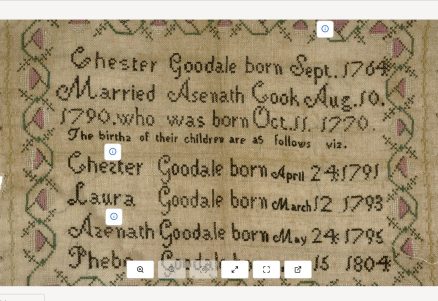 Chester Goodale born Sept. 1764
Married Asenath Cook Aug. 10.
1790. who was born Oct. 11. 1770.
The births of their children are as follows viz.
Chester Goodale born April 24 1791
Laura Goodale born March 12 1793
Asenath Goodale born May 24 1795
Phebe Goodale 15 1804